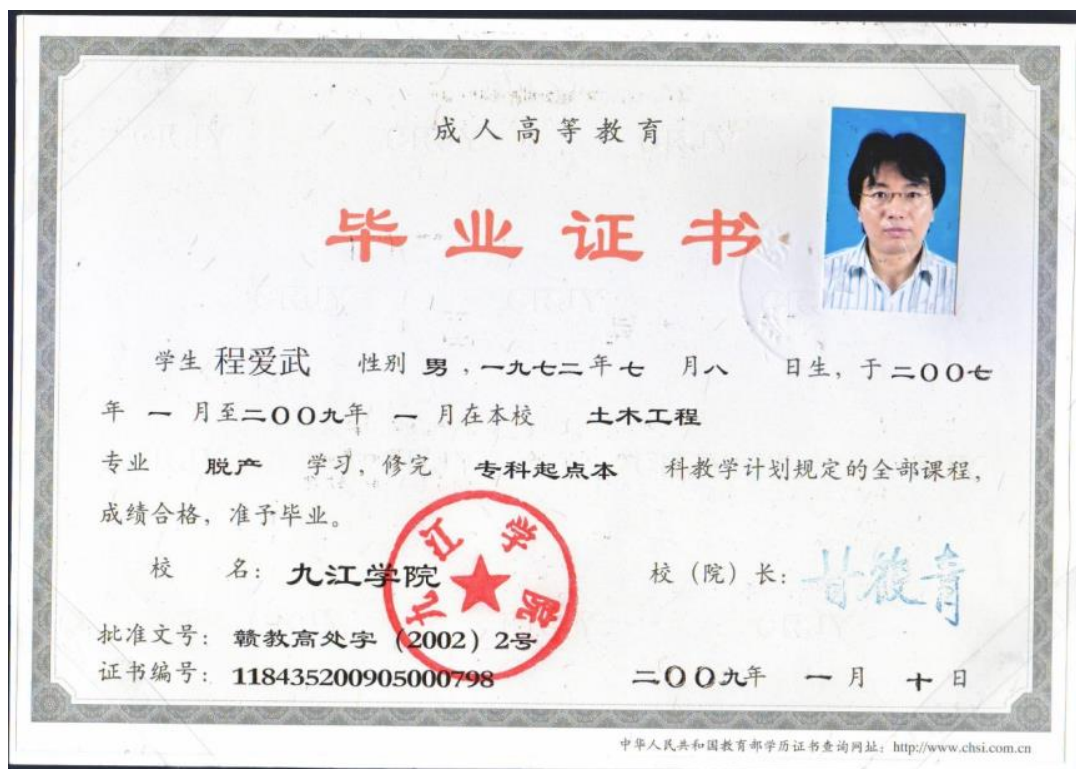 成人高等教育
毕业证书
学生 程爱武 性别 男，一九七二年七 月八 日生，于二〇〇七
年 一 月至二〇〇九年 一 月在本校 土木工程
专业 脱产 学习，修完 专科起点本 科教学计划规定的全部课程，
成绩合格，准予毕业。
校 名：九江学院 校（院）长：甘筱青
九江学院
批准文号：赣教高处字（2002）2号
证书编号：118435200905000798 二〇〇九年 一 月 十 日
中华人民共和国教育部学历证书查询网址：http://www.chsi.com.cn